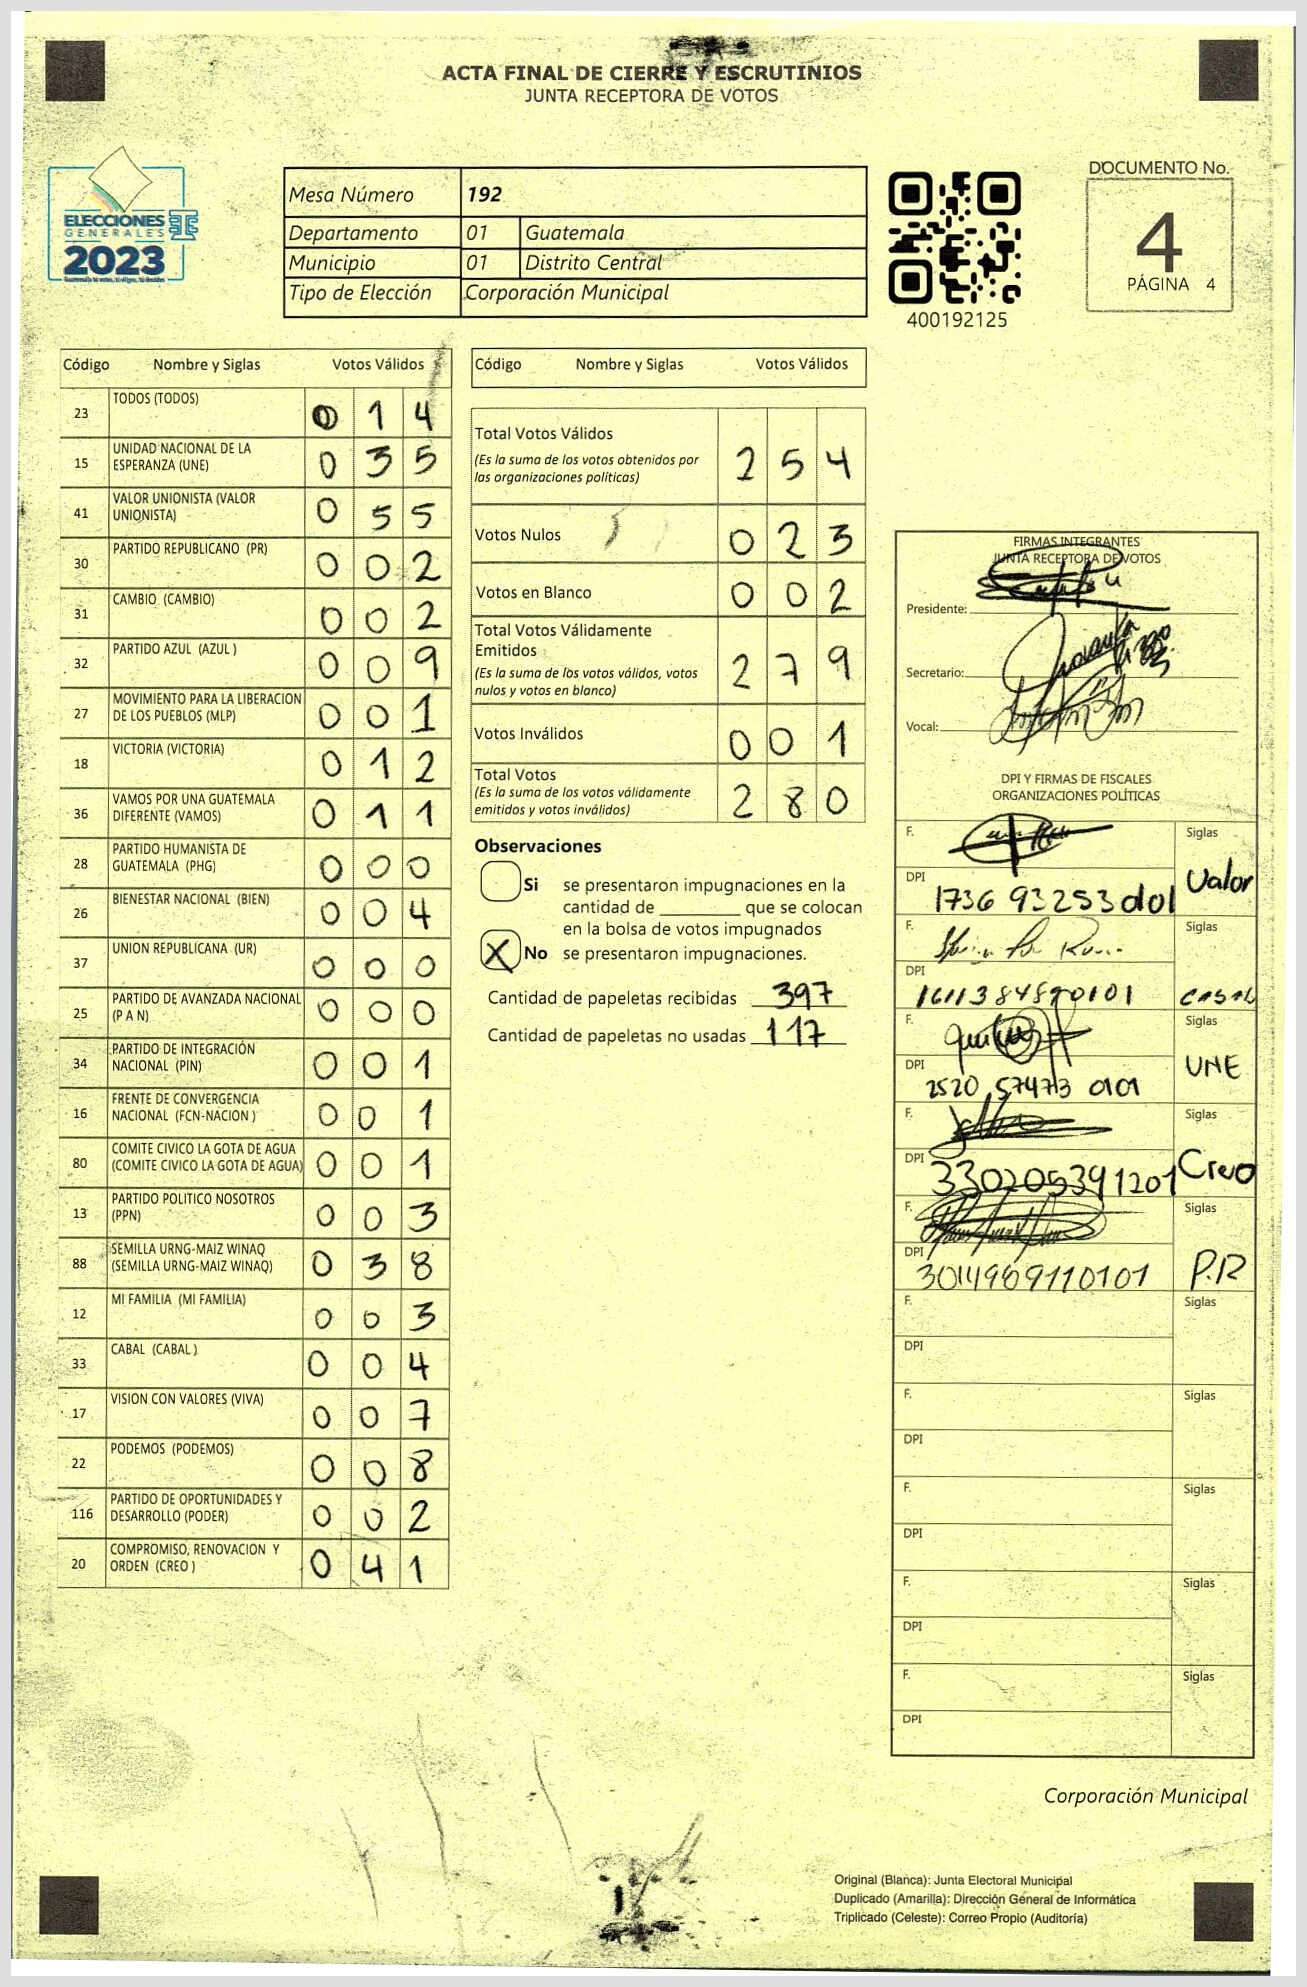 ACTA FINAL DE CIERRE Y ESCRUTINIOS
JUNTA RECEPTORA DE VOTOS
ELECCIONES
GENERALES
2023
Mesa Número 192
Departamento 01 Guatemala
Municipio 01 Distrito Central
Tipo de Elección Corporación Municipal
400192125
DOCUMENTO No.
4
PÁGINA 4
Código Nombre y Siglas Votos Válidos
23 TODOS (TODOS) 0 1 4
15 UNIDAD NACIONAL DE LA
ESPERANZA (UNE) 0 3 5
41 VALOR UNIONISTA (VALOR
UNIONISTA) 0 5 5
30 PARTIDO REPUBLICANO (PR) 0 0 2
31 CAMBIO (CAMBIO) 0 0 2
32 PARTIDO AZUL (AZUL ) 0 0 9
27 MOVIMIENTO PARA LA LIBERACION
DE LOS PUEBLOS (MLP) 0 0 1
18 VICTORIA (VICTORIA) 0 1 2
36 VAMOS POR UNA GUATEMALA
DIFERENTE (VAMOS) 0 1 1
28 PARTIDO HUMANISTA DE
GUATEMALA (PHG) 0 0 0
26 BIENESTAR NACIONAL (BIEN) 0 0 4
37 UNION REPUBLICANA (UR) 0 0 0
25 PARTIDO DE AVANZADA NACIONAL
(P A N) 0 0 0
34 PARTIDO DE INTEGRACIÓN
NACIONAL (PIN) 0 0 1
16 FRENTE DE CONVERGENCIA
NACIONAL (FCN-NACION ) 0 0 1
80 COMITE CIVICO LA GOTA DE AGUA
(COMITE CIVICO LA GOTA DE AGUA) 0 0 1
13 PARTIDO POLITICO NOSOTROS
(PPN) 0 0 3
88 SEMILLA URNG-MAIZ WINAQ
(SEMILLA URNG-MAIZ WINAQ) 0 3 8
12 MI FAMILIA (MI FAMILIA) 0 0 3
33 CABAL (CABAL ) 0 0 4
17 VISION CON VALORES (VIVA) 0 0 7
22 PODEMOS (PODEMOS) 0 0 8
116 PARTIDO DE OPORTUNIDADES Y
DESARROLLO (PODER) 0 0 2
20 COMPROMISO, RENOVACION Y
ORDEN (CREO ) 0 4 1
Código Nombre y Siglas Votos Válidos
Total Votos Válidos
(Es la suma de los votos obtenidos por
las organizaciones políticas) 2 5 4
Votos Nulos 0 2 3
Votos en Blanco 0 0 2
Total Votos Válidamente
Emitidos
(Es la suma de los votos válidos, votos
nulos y votos en blanco) 2 7 9
Votos Inválidos 0 0 1
Total Votos
(Es la suma de los votos válidamente
emitidos y votos inválidos) 2 8 0
Observaciones
Si se presentaron impugnaciones en la
cantidad de ________ que se colocan
en la bolsa de votos impugnados
X No se presentaron impugnaciones.
Cantidad de papeletas recibidas 397
Cantidad de papeletas no usadas 117
FIRMAS INTEGRANTES
JUNTA RECEPTORA DE VOTOS
Presidente:
Secretario:
Vocal:
DPI Y FIRMAS DE FISCALES
ORGANIZACIONES POLÍTICAS
F. Siglas
DPI 1736 93253 0101 Valor
F. Siglas
DPI 1611384870101 CABAL
F. Siglas
DPI 2520 57473 0101 UNE
F. Siglas
DPI 330205391201 Creo
F. Siglas
DPI 3014969110101 P.R
F. Siglas
DPI
F. Siglas
DPI
F. Siglas
DPI
F. Siglas
DPI
F. Siglas
DPI
Corporación Municipal
Original (Blanca): Junta Electoral Municipal
Duplicado (Amarilla): Dirección General de Informática
Triplicado (Celeste): Correo Propio (Auditoría)